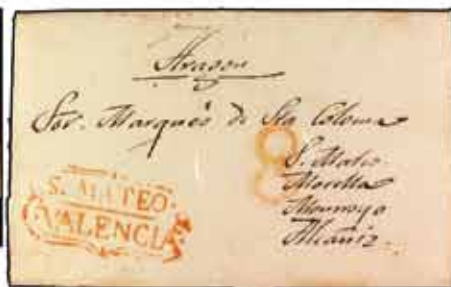 Aragon
Sor. Marqués de Sta Coloma
S. Mateo
Morella
Monroyo
Alcañiz.
S. MATEO
VALENCIA
8